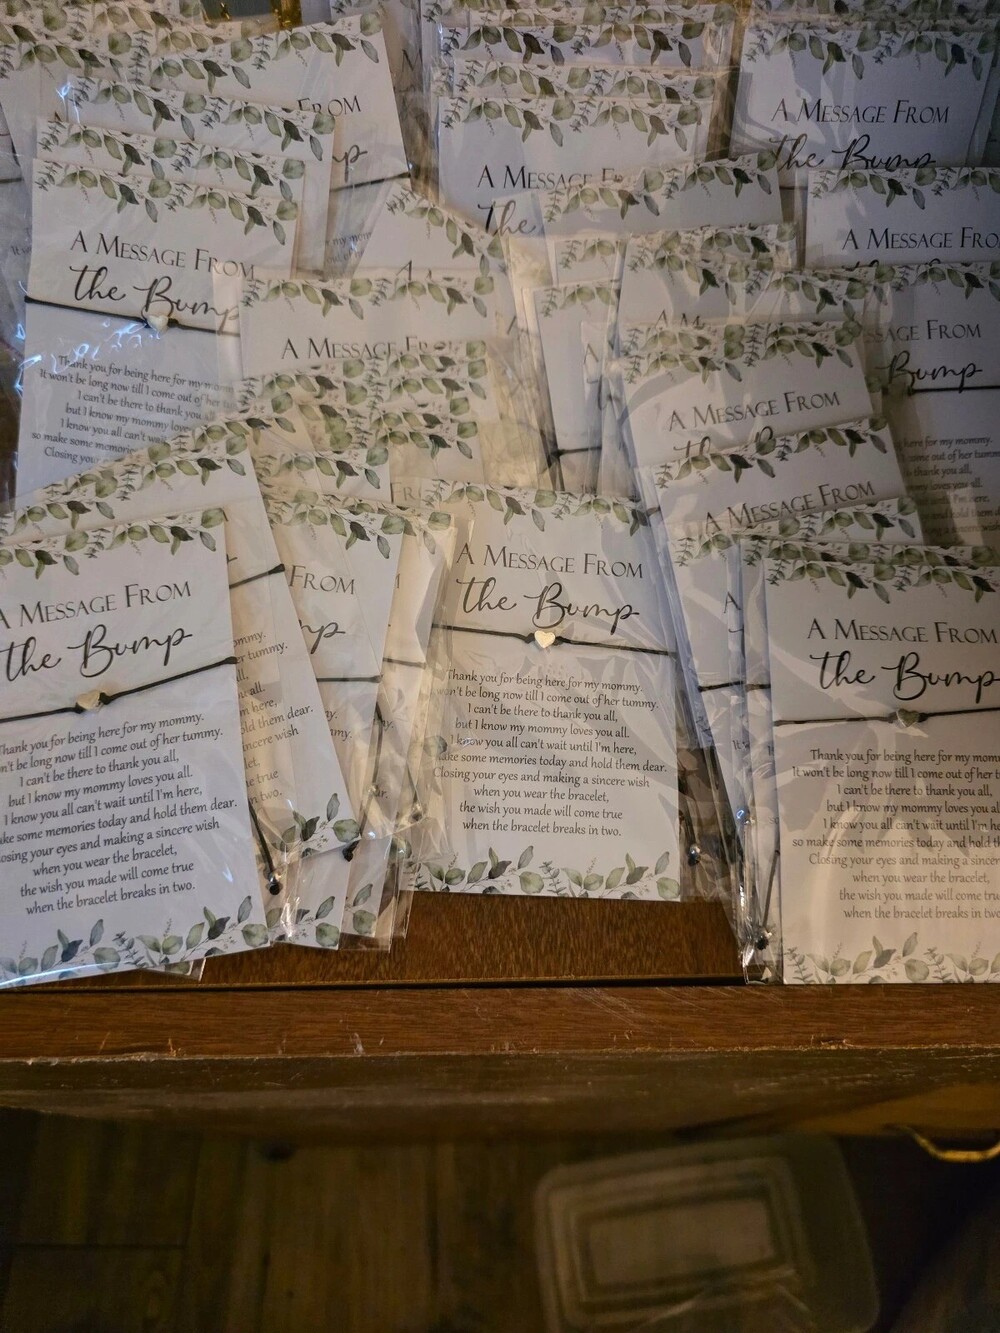 FROM
A MESSAGE FROM
the Bump
A MESSAGE FROM
the
A MESSAGE FROM
the Bump
Thank you for being here for my mommy.
It won't be long now till I come out of her
I can't be there to thank you all
but I know my mommy love
I know you all can't wait
so make some memories
Closing your
A MESSAGE
A MESSAGE FROM
A MESSAGE FROM
A MESSAGE FROM
FROM
Bump
here for my mommy.
come out of her tummy
thank you all,
mommy loves you all.
A MESSAGE FROM
the Bump
Thank you for being here for my mommy.
I can't be there to thank you all,
but I know my mommy loves you all.
I know you all can't wait until I'm here,
some memories today and hold them dear.
Closing your eyes and making a sincere wish
when you wear the bracelet,
the wish you made will come true
when the bracelet breaks in two.
FROM
hold them dear.
sincere wish
A MESSAGE FROM
the Bump
Thank you for being here for my mommy.
long now till I come out of her tummy.
I can't be there to thank you all,
but I know my mommy loves you all.
I know you all can't wait until I'm here,
make some memories today and hold them dear.
Closing your eyes and making a sincere wish
when you wear the bracelet,
the wish you made will come true
when the bracelet breaks in two.
A MESSAGE FROM
the Bump
Thank you for being here for my mom
It won't be long now till I come out of her
I can't be there to thank you all,
but I know my mommy loves you al
I know you all can't wait until I'm h
so make some memories today and hold th
Closing your eyes and making a sincer
when you wear the bracelet,
the wish you made will come tru
when the bracelet breaks in two